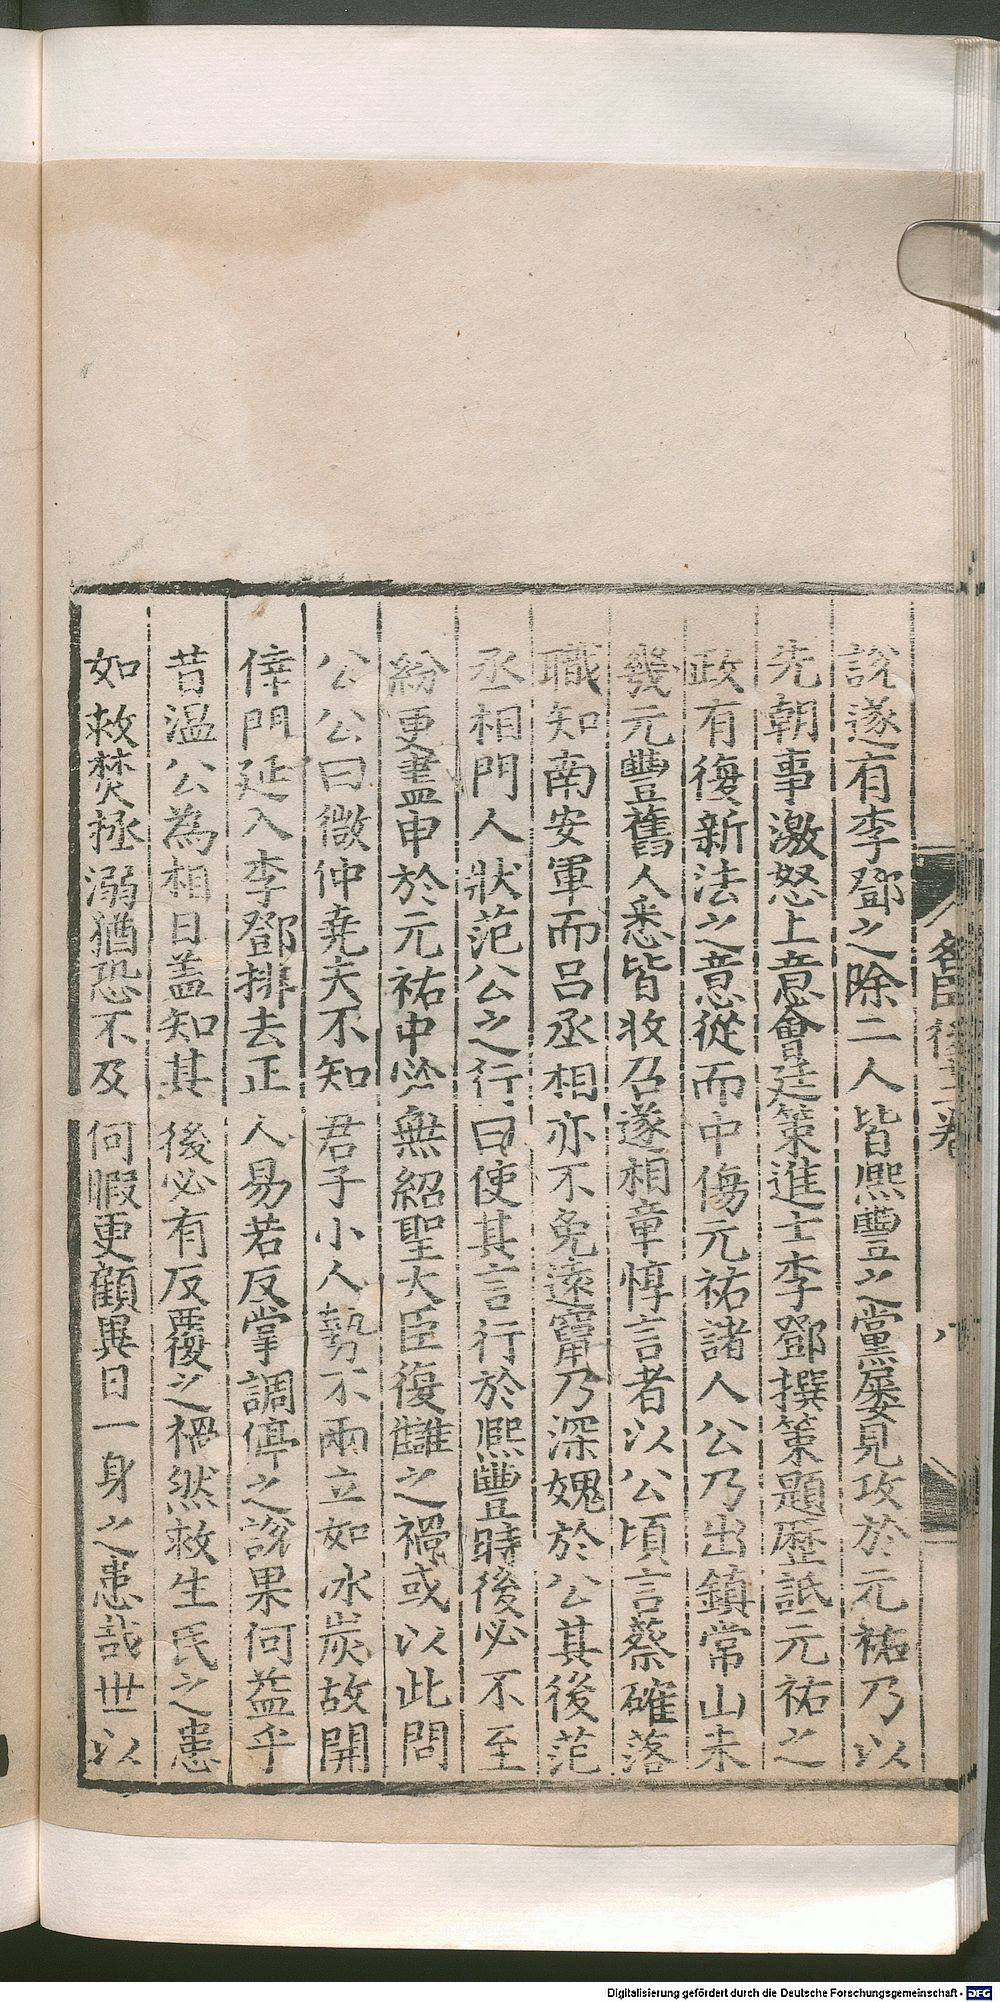 說遂有李鄧之除二人皆熈豐之黨屢見攻於元祐乃以
先朝事激怒上意會廷策進士李鄧撰策題歷詆元祐之
政有復新法之意從而中傷元祐諸人公乃出鎮常山未
幾元豐舊人悉皆收召遂相章惇言者以公頃言蔡確落
職知南安軍而呂丞相亦不免遠竄乃深媿於公其後范
丞相門人狀范公之行曰使其言行於熈豐時後必不至
紛更盡申於元祐中必無紹聖大臣復讎之禍或以此問
公公曰微仲堯夫不知君子小人勢不兩立如冰炭故開
倖門延入李鄧排去正人易若反掌調停之說果何益乎
昔溫公為相日盖知其後必有反覆之禍然救生民之患
如救焚拯溺猶恐不及何暇更顧異日一身之患哉世以
名臣後十二卷
八
Digitalisierung gefördert durch die Deutsche Forschungsgemeinschaft - DFG